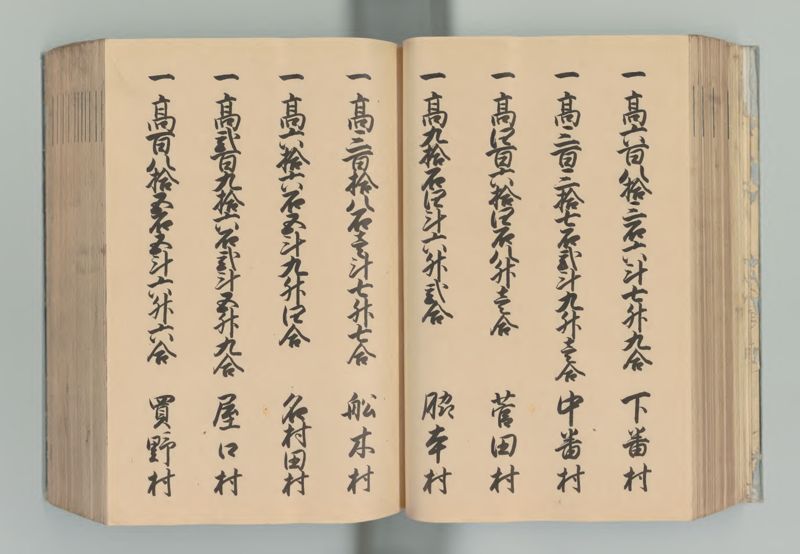 一 高六百八拾三石六斗七升九合 下番村
一 高三百三拾七石弐斗九升壱合 中番村
一 高四百六拾四石八升壱合 菅田村
一 高九拾石四斗六升弐合 脇本村
一 高三百拾八石壱斗七升七合 船木村
一 高六拾六石五斗九升四合 名村田村
一 高弐百九拾六石弐斗五升九合 屋口村
一 高百八拾五石五斗六升六合 買野村